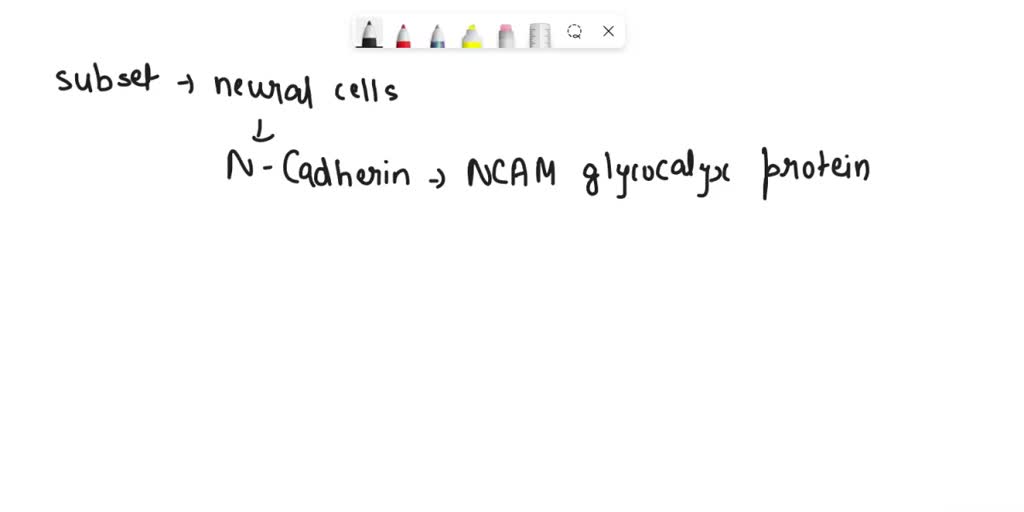 subset → neural cells
↓
N-Cadherin → NCAM glycocalyx protein